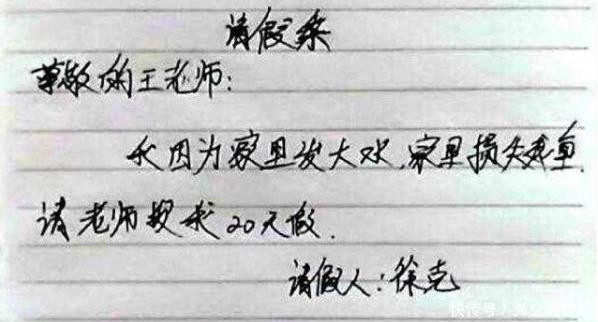 请假条
尊敬的王老师:
我因为家里发大水,家里损失严重,
请老师授我20天假.
请假人:徐克
快传号/